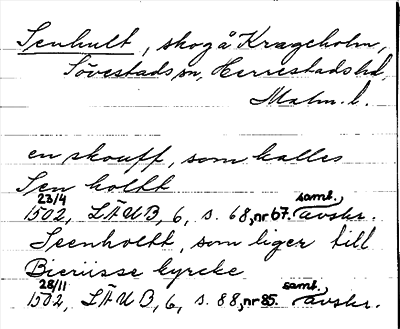 Senhult, skog å Krageholm,
Sövestads sn, Herrestads hd,
Malm. l.
en skouff, som kalles
Sen holtt
23/4 samt.
1502, LÄUB, 6, s. 68, nr 67. avskr.
Seenholtt, som liger till
Bierüsse kyrcke
28/11 samt.
1502, LÄUB, 6, s. 88, nr 85. avskr.